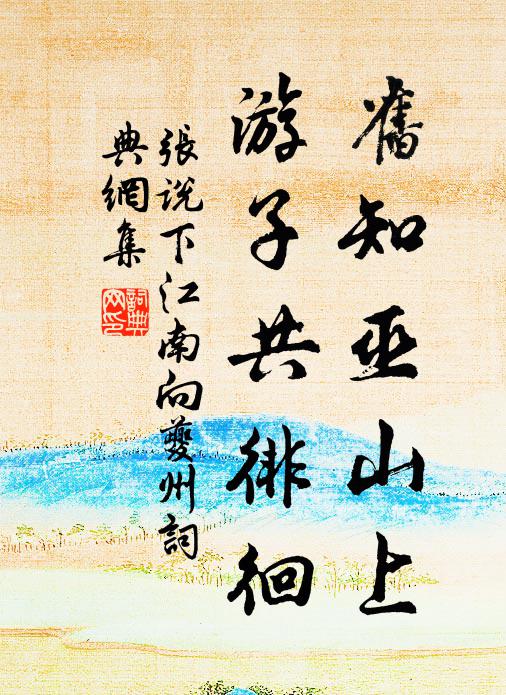 舊知巫山上
游子共徘徊
張說下江南向夔州詞
典網集
詞典網印